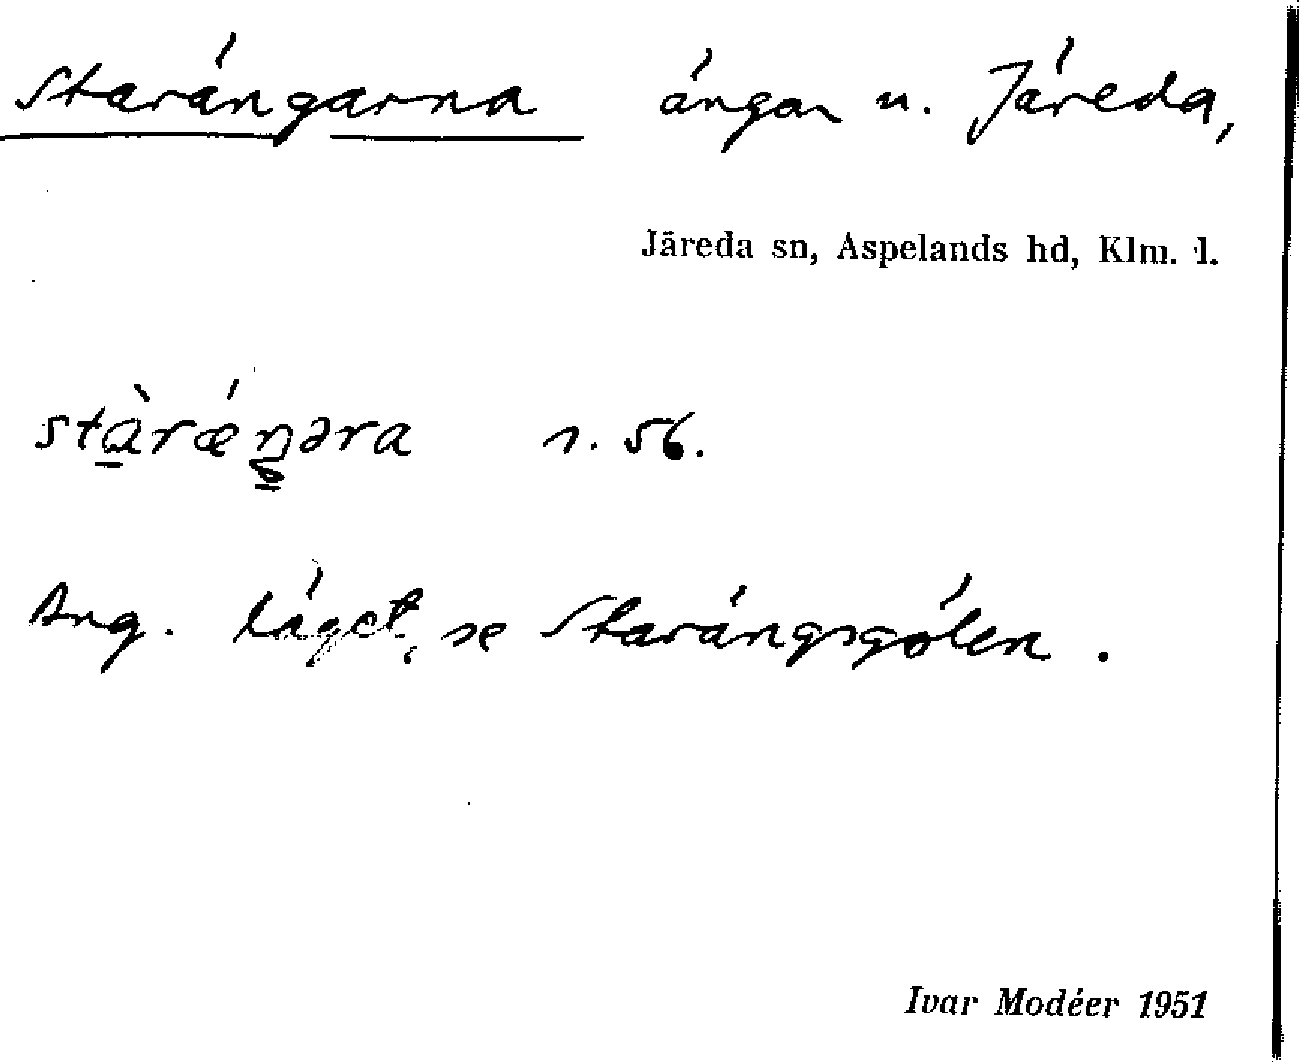 Starängarna ängar u. Järeda,
Järeda sn, Aspelands hd, Klm. l.
stàrǽŋəra s. 56.
Ang. läget, se Starängsgölen.
Ivar Modéer 1951